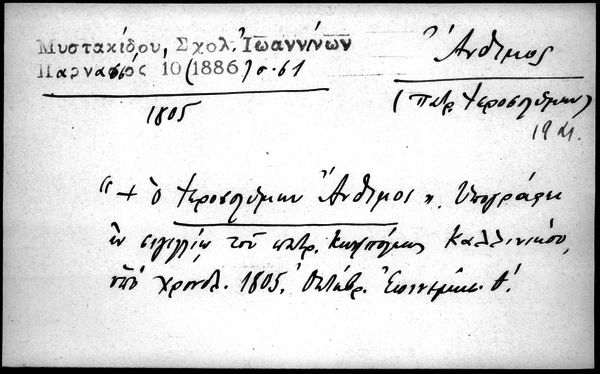 Μυστακίδου, Σχολ. Ἰωαννίνων
Παρνασσός 10 (1886) σ. 61
1805
Ἄνθιμος
(Πατρ. Ἱεροσολύμων)
19 αἰ.
"+ ὁ Ἱεροσολύμων Ἄνθιμος". Ὑπογράφει
ἐν σιγιλλίῳ τοῦ πατρ. Κων/πόλεως Καλλινίκου,
ὑπὸ χρονολ. 1805, Ὀκτωβρ. Ἐπινεμήσ. θ'.